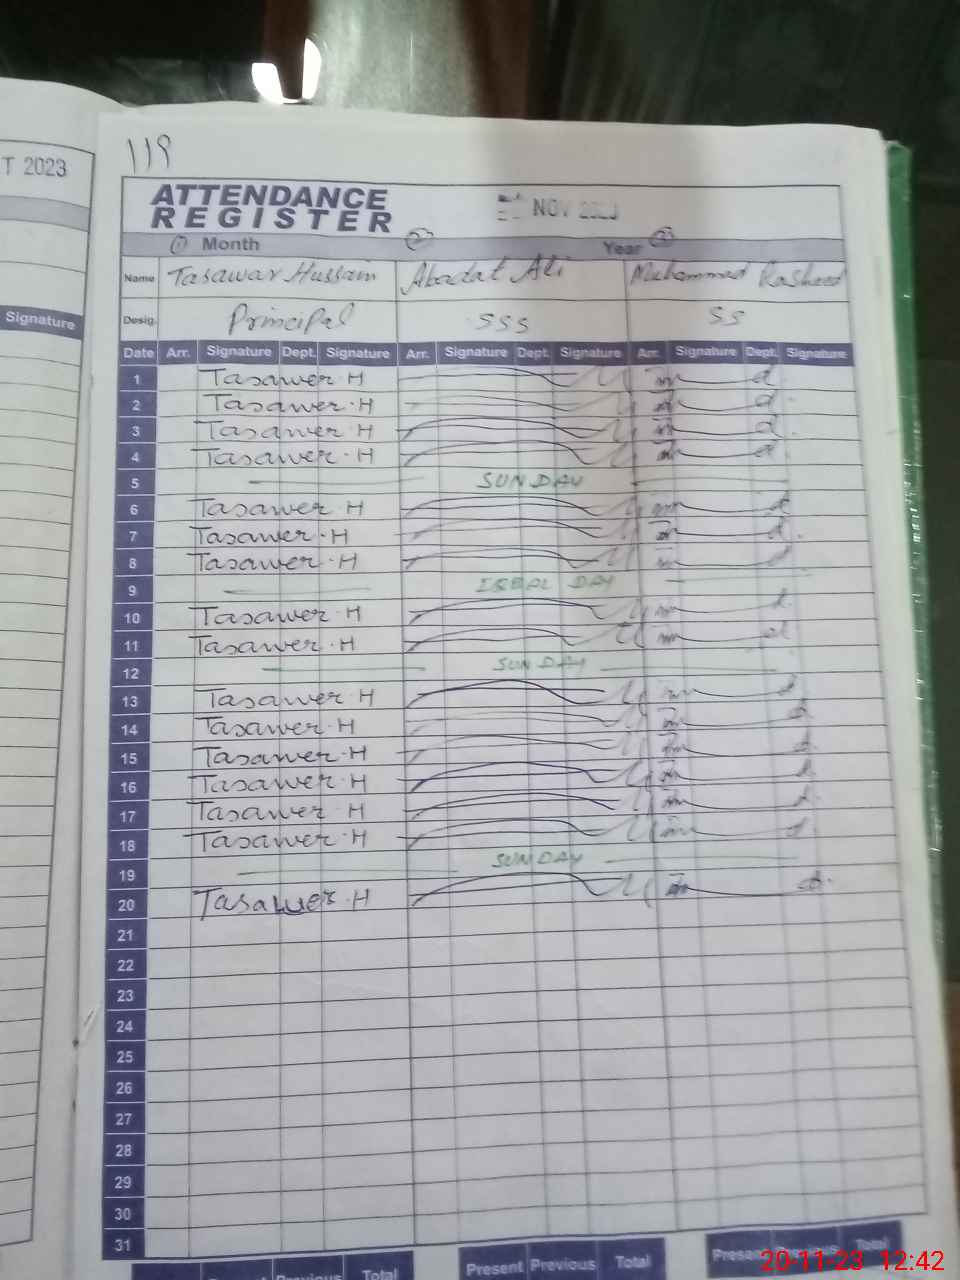 T 2023
Signature
119
ATTENDANCE
REGISTER
NOV 2023
1 Month 2 Year 3
Name Tasawar Hussain Abadat Ali Muhammad Rasheed
Desig. Principal SSS SS
Date Arr. Signature Dept. Signature Arr. Signature Dept. Signature Arr. Signature Dept. Signature
1 Tasawer.H
2 Tasawer.H
3 Tasawer.H
4 Tasawer.H
5 SUNDAY
6 Tasawer.H
7 Tasawer.H
8 Tasawer.H
9 IQBAL DAY
10 Tasawer.H
11 Tasawer.H
12 SUNDAY
13 Tasawer.H
14 Tasawer.H
15 Tasawer.H
16 Tasawer.H
17 Tasawer.H
18 Tasawer.H
19 SUNDAY
20 Tasawer.H
21
22
23
24
25
26
27
28
29
30
31
Present Previous Total Present Previous Total Present Previous Total
20-11-23 12:42